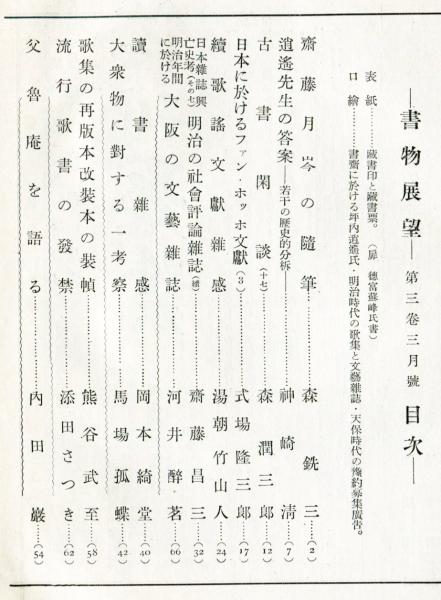 ―書物展望― 第三卷三月號 目次―
表紙………藏書印と藏書票。（扉 德富蘇峰氏書）
口繪………書齋に於ける坪内逍遙氏・明治時代の歌集と文藝雜誌・天保時代の豫約募集廣告。
齋藤月岑の隨筆……森銑三……（2）
逍遙先生の答案――若干の歷史的分析……神崎清……（7）
古書閑談（十七）……森潤三郎……（12）
日本に於けるファン・ホッホ文獻（3）……式場隆三郎……（17）
續歌謠文獻雜感……湯朝竹山人……（24）
日本雜誌興亡史考（その七） 明治の社會評論雜誌（續）……齋藤昌三……（32）
明治年間に於ける 大阪の文藝雜誌……河井醉茗……（66）
讀書雜感……岡本綺堂……（40）
大衆物に對する一考察……馬場孤蝶……（42）
歌集の再版本改裝本の裝幀……熊谷武至……（58）
流行歌書の發禁……添田さつき……（62）
父魯庵を語る……内田巖……（54）